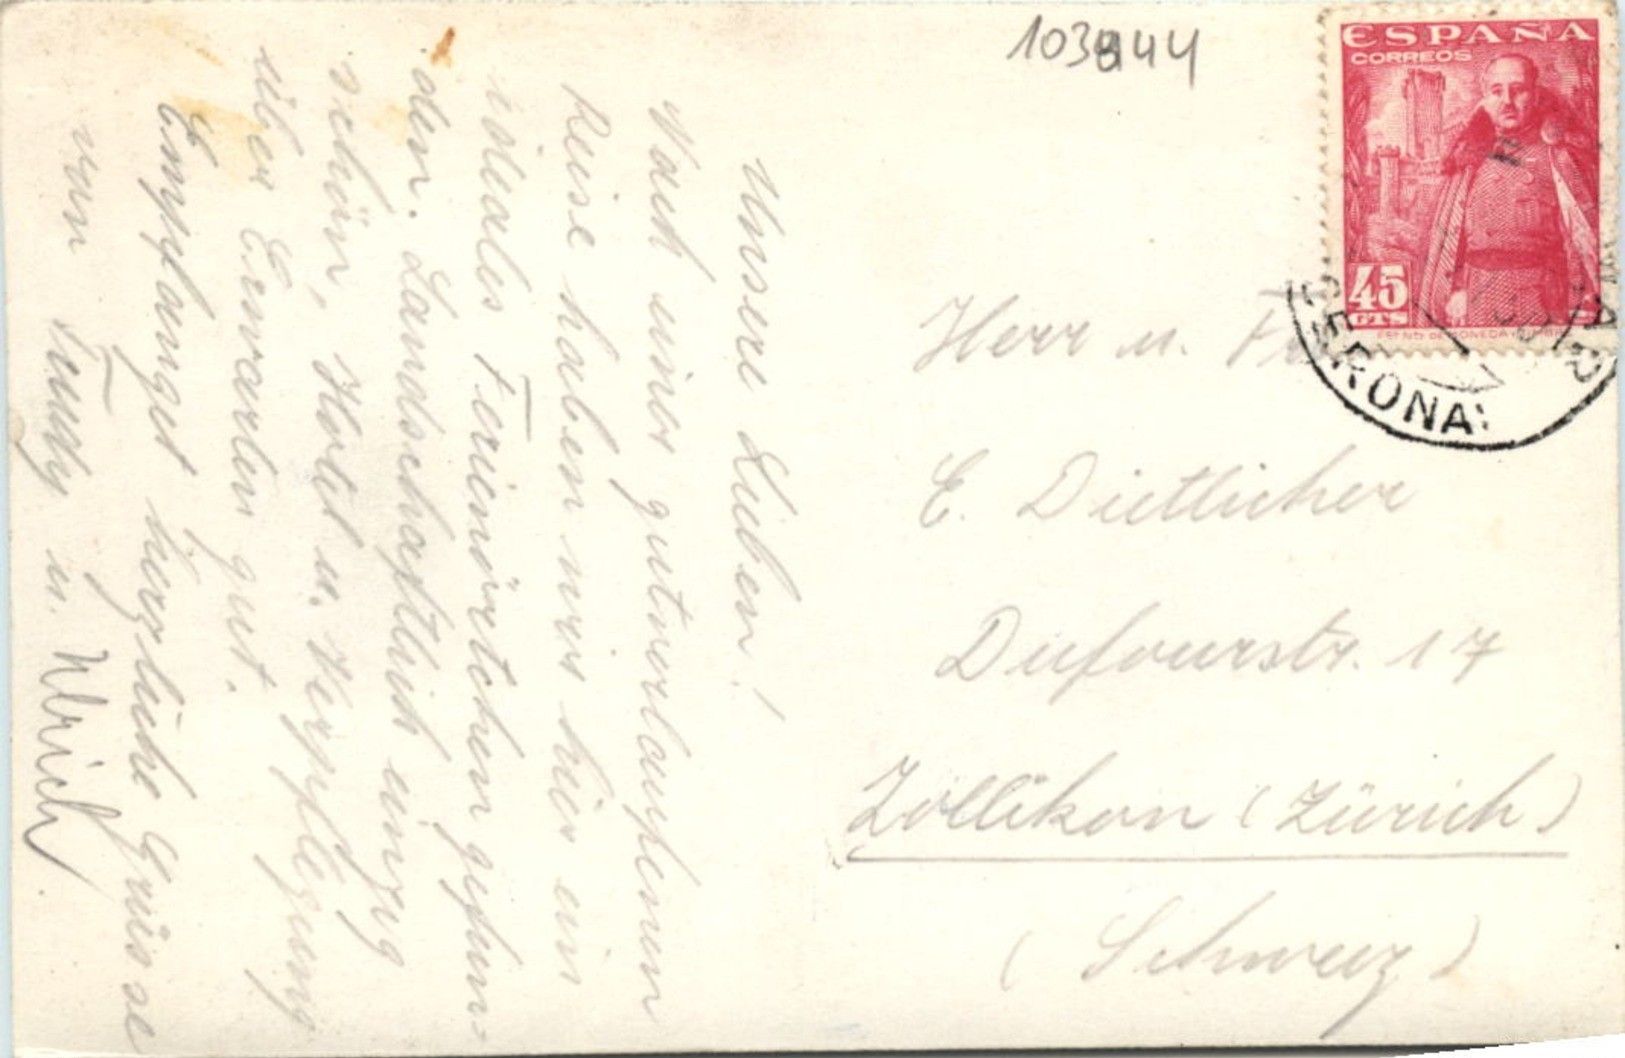 103944
ESPAÑA
CORREOS
45
CTS
GERONA
Unsere Lieben!
Nach einer gutverlaufenen
Reise haben wir hier ein
ideales Ferienörtchen gefun-
den. Landschaftlich einzig
schön, Hotel u. Verpflegung
über Erwarten gut.
Empfanget herzliche Grüsse
von Trudy u. Ulrich.
Herr u. Fr
E. Dietlicher
Dufourstr. 17
Zollikon (Zürich)
(Schweiz)